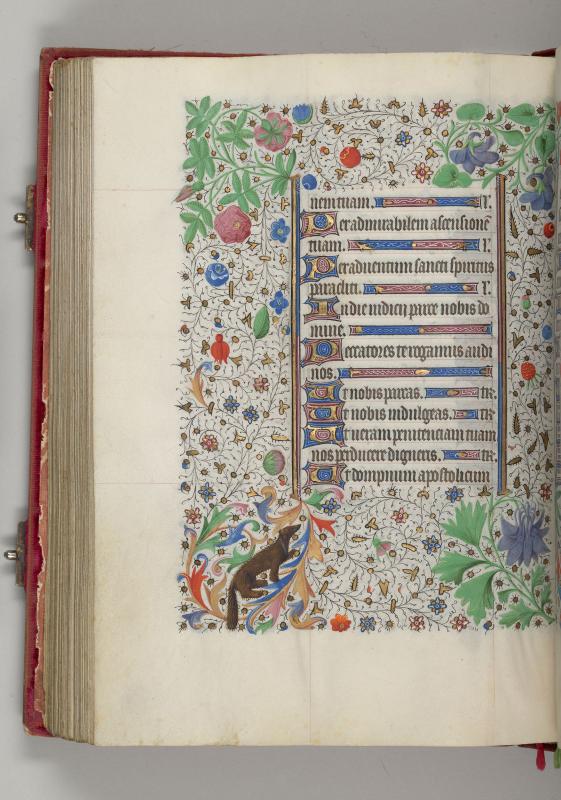 nem tuam. R.
Per admirabilem ascensionē
tuam. R.
Per adventum sancti spiritus
paracliti. R.
In die iudicii parce nobis do
mine.
Peccatores te rogamus audi
nos.
Ut nobis parcas. te R.
Ut nobis indulgeas. te R.
Ut veram penitenciam tuam
nos perducere digneris. te R.
Ut dompnum apostolicum